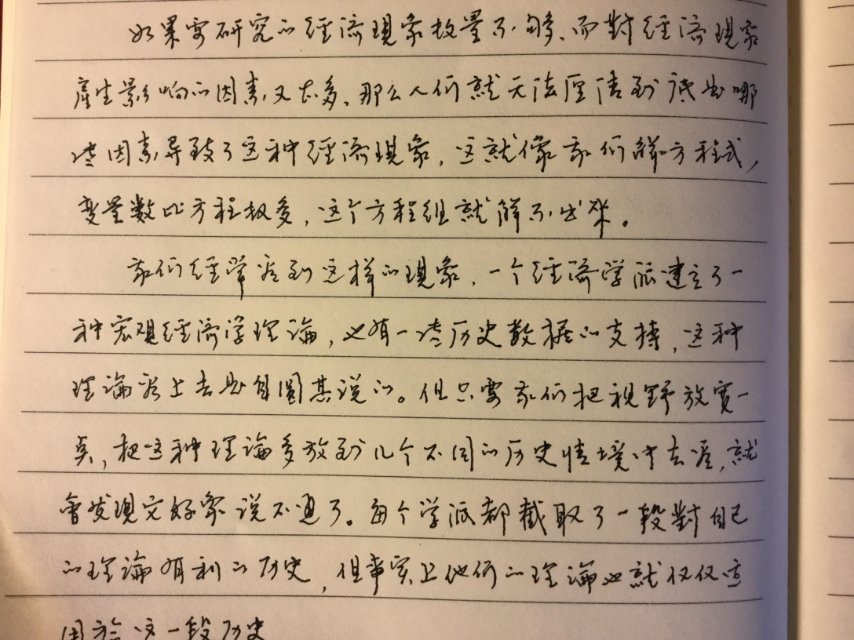 如果要研究的经济現象故量不够、而對经济現象
產生影响的因素又太多，那么人们就无法厘清到底是哪
些因素导致了这种经济現象，这就像我们解方程式，
变量数比方程极多，这个方程组就解不出来。
我们经常看到这样的現象，一个经济学派建立了一
种宏观经济学理论，也有一些历史数据的支持，这种
理论看上去是自圆其说的。但只要我们把视野放宽一
点，把这种理论多放到几个不同的历史情境中去看，就
會发現它好象说不通了。每个学派都截取了一段對自己
的理论有利的历史，但事实上他们的理论也就仅仅适
用於这一段历史